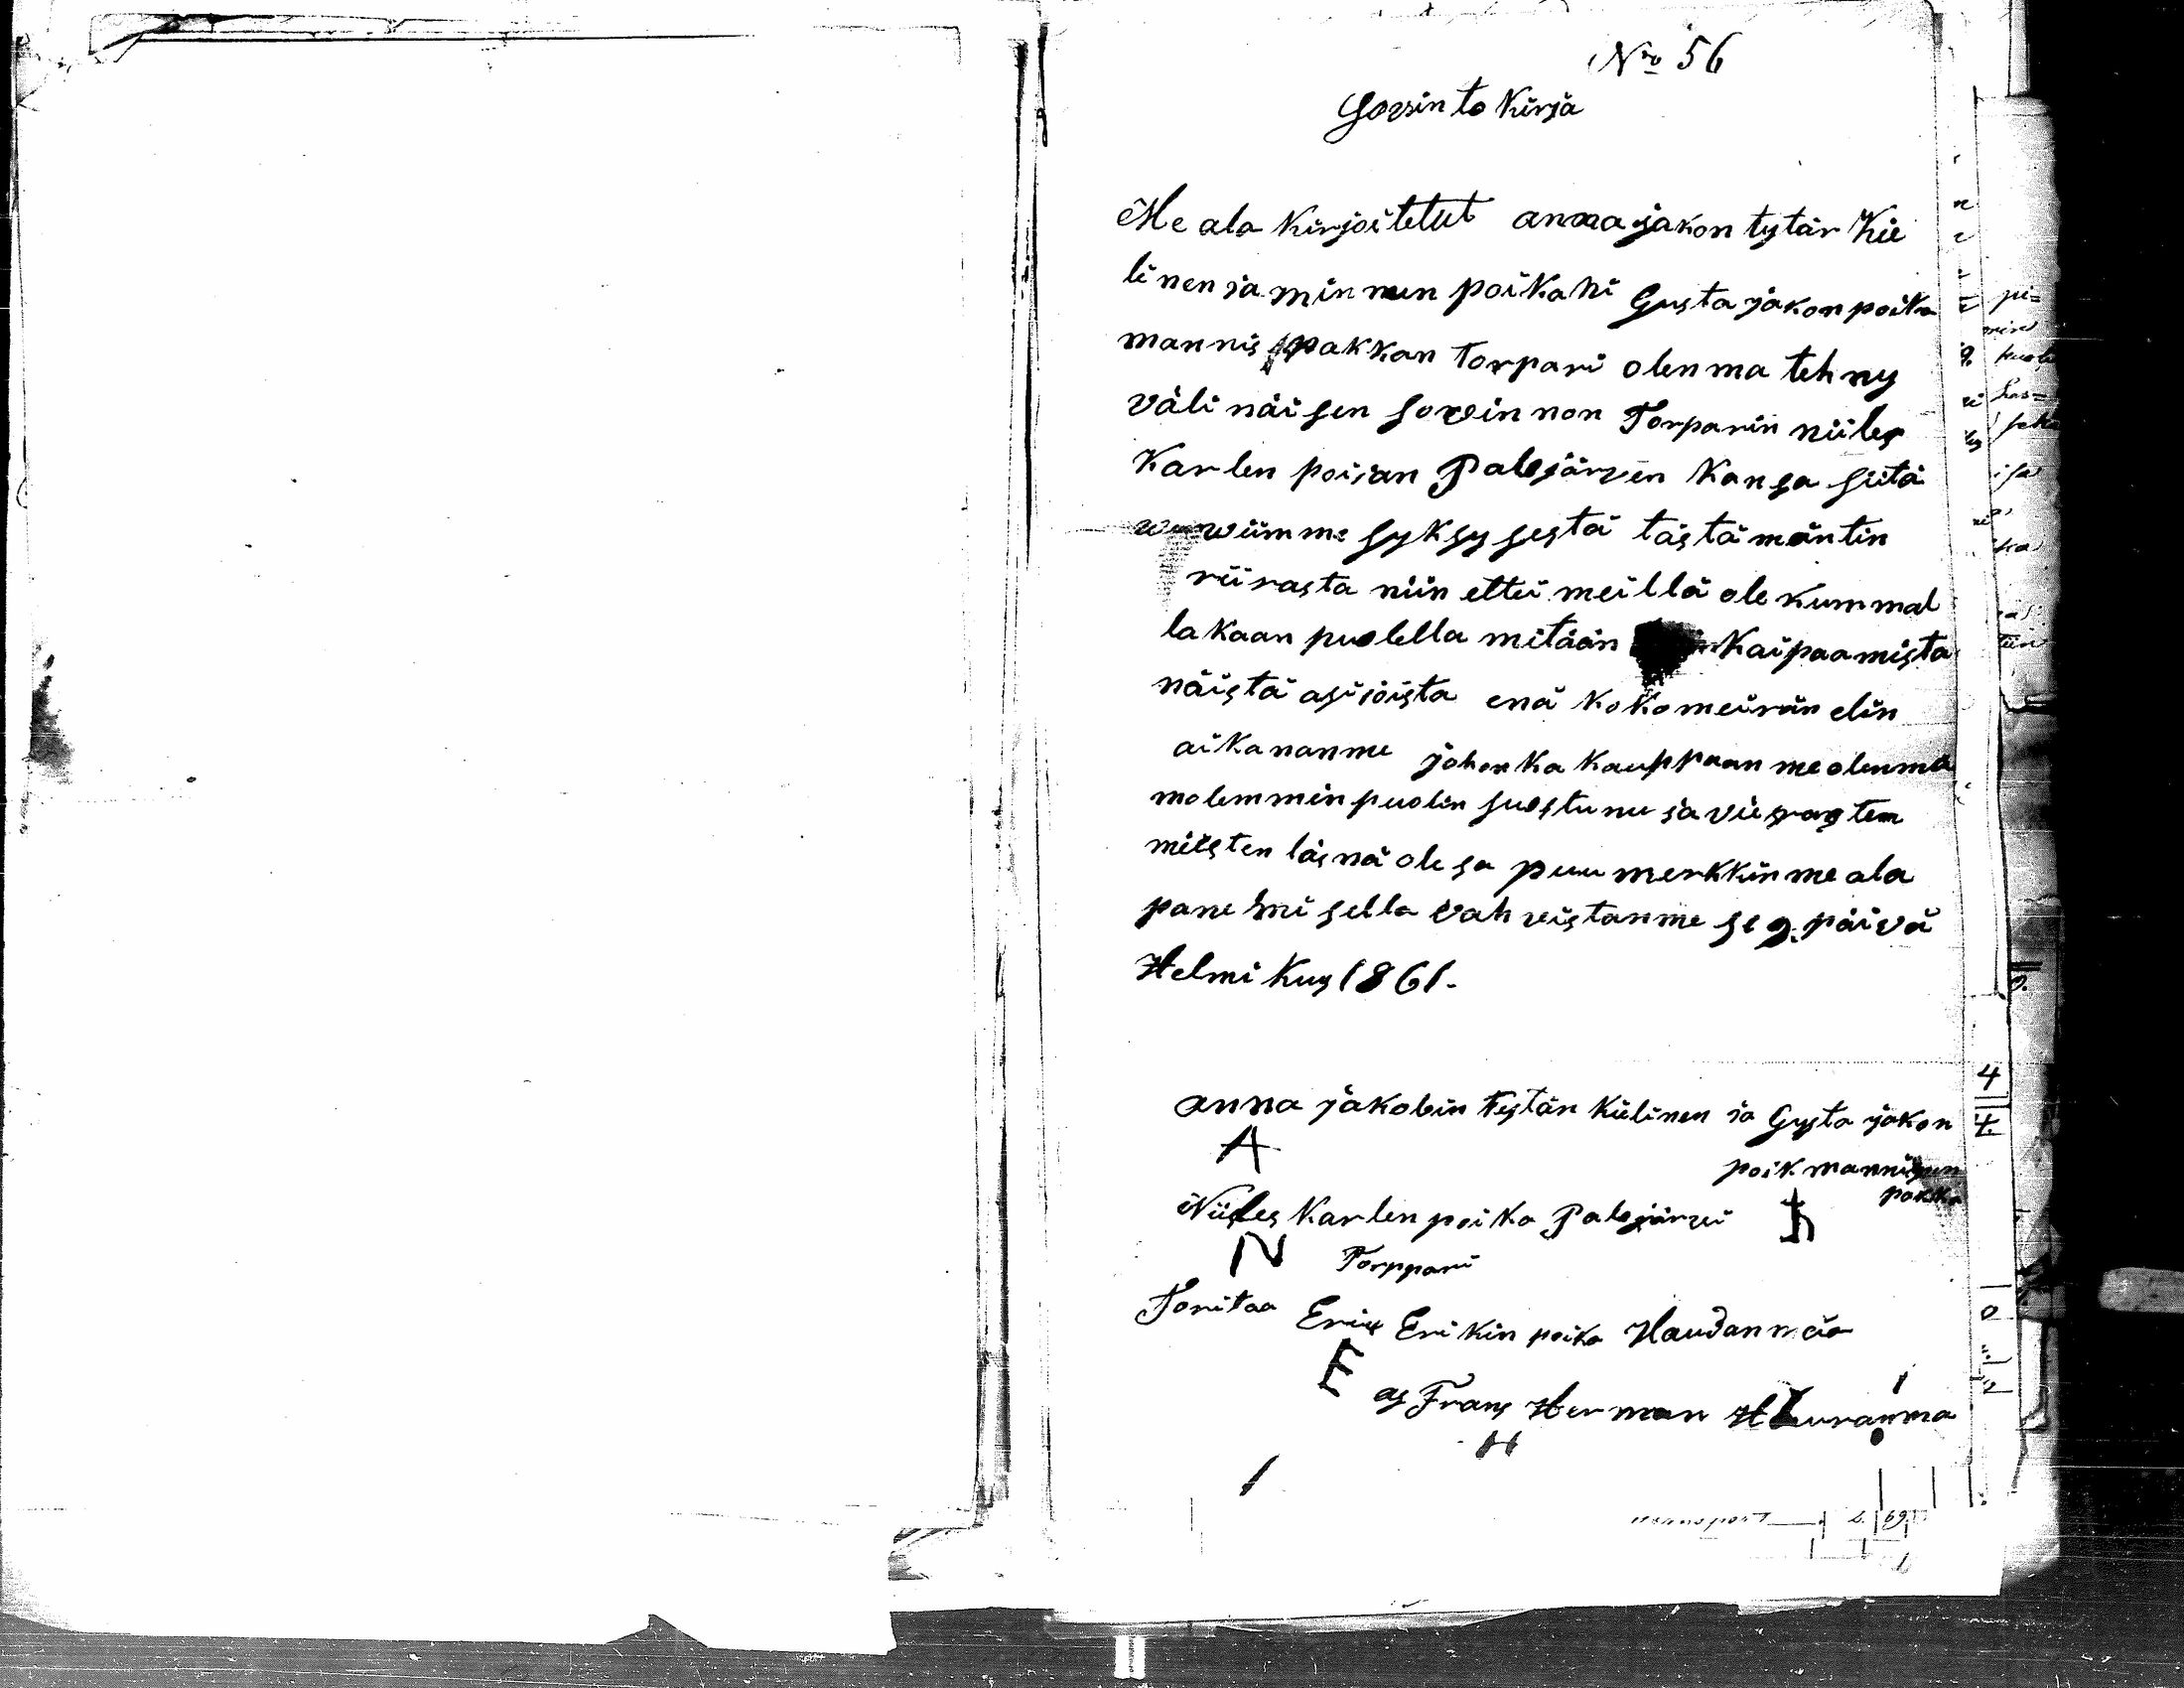 No 56
Sovinto Kirja
Me ala Kirjoitetut anna jakon tytär Kie
linen ja minnun poikani Gusta jakon poika
mannis pakkan Torpari olenma tehny
väli näisen sovinnon Torparin niiles
Karlen poijan Palojärven Kansa siitä
wiimme syksysestä tästä mäntin
riirasta niin ettei meillä ole kummal
lakaan puolella mitään Kaipaamista
näistä asijoista enä koko meirän elin
aikananme johonka kauppaan me olenma
molemmin puolin suostunu ja vierasten
miesten läsnä olesa puumerkkinme ala
panemisella vahvistanme se 9. päivä
Helmi Kus 1861.
anna jakobin tytär Kielinen ja Gusta jakon
A
poik mannisen
pakka
Niiles Karlen poika Palojärvi
N Torppari
Toritaa Erix Erikin poika Haudanmaa
E
as Frans Herman
H